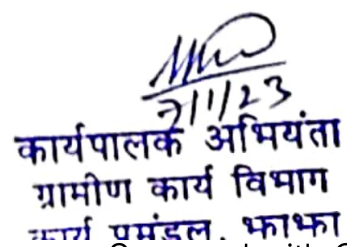 7/1/23
कार्यपालक अभियंता
ग्रामीण कार्य विभाग
कार्य प्रमंडल, झाझा